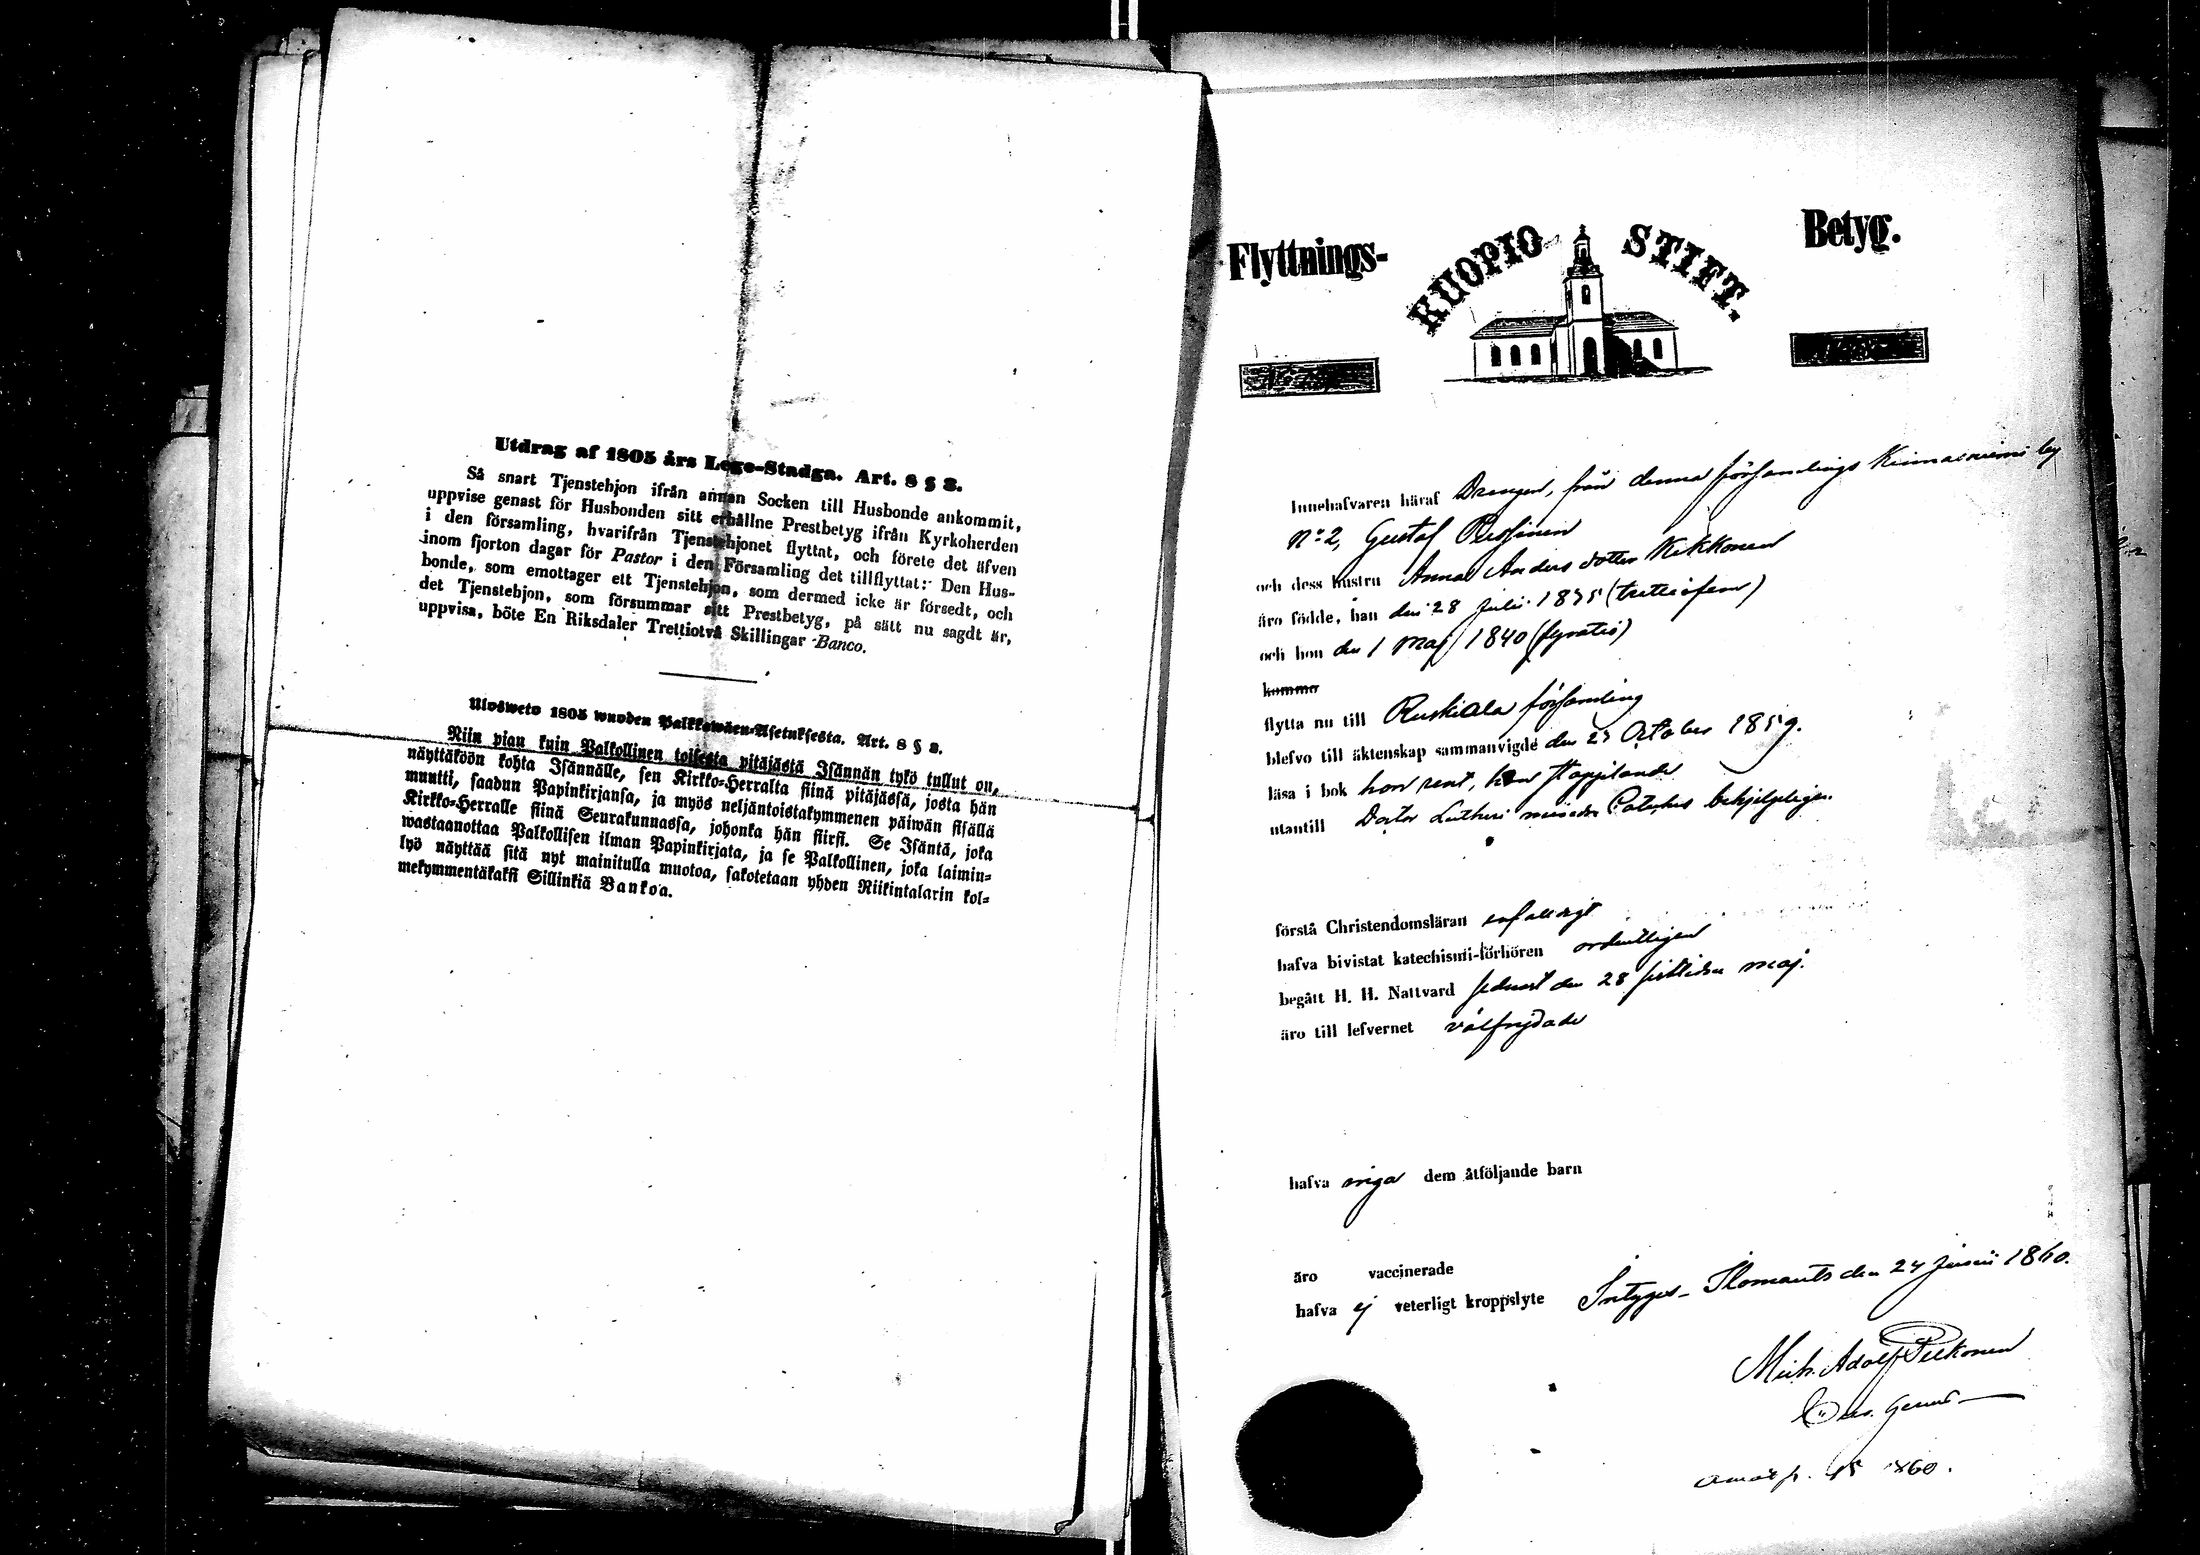 Utdrag af 1805 års Lego-Stadga. Art. 8 § 8.
Så snart Tjenstehjon ifrån annan Socken till Husbonde ankommit,
uppvise genast för Husbonden sitt erhållne Prestbetyg ifrån Kyrkoherden
i den församling, hvarifrån Tjenstehjonet flyttat, och förete det äfven
inom fjorton dagar för Pastor i den Församling det tillflyttat: Den Hus-
bonde, som emottager ett Tjenstehjon, som dermed icke är försedt, och
det Tjenstehjon, som försummar sitt Prestbetyg, på sätt nu sagdt är,
uppvisa, böte En Riksdaler Trettiotvå Skillingar Banco.
Ulosweto 1805 wuoden Palkkawäen-Asetuksesta. Art. 8 § 8.
Niin pian kuin Palkollinen toisesta pitäjästä Isännän tykö tullut on,
näyttäköön kohta Isännälle, sen Kirkko-Herralta siinä pitäjässä, josta hän
muutti, saadun Papinkirjansa, ja myös neljäntoistakymmenen päiwän sisällä
Kirkko-Herralle siinä Seurakunnassa, johonka hän siirsi. Se Isäntä, joka
wastaanottaa Palkollisen ilman Papinkirjata, ja se Palkollinen, joka laimin-
lyö näyttää sitä nyt mainitulla muotoa, sakotetaan yhden Riikintalarin kol-
mekymmentäkaksi Sillinkiä Banko'a.
Flyttnings- KUOPIO STIFT. Betyg.
Innehafvaren häraf Drengen, från denna församlings by
N:o 2, Gustaf
och dess hustru Anna Anders dotter Kekkonen
äro födde, han den 28 Julii 1835 (trettiofem)
och hon den 1 Maj 1840 (fyratio)
komma
flytta nu till Ruskiala församling
blefvo till äktenskap sammanvigde den October 1859.
läsa i bok hon rent, han stapplande
utantill Doctor Lutheri mindre Cateches behjelpligen.
förstå Christendomsläran enfalldigt
hafva bivistat katechismi-förhören ordentligen
begått H. H. Nattvard sednast den 28 sistlidne Maj.
äro till lefvernet välfrejdade
hafva inga dem åtföljande barn
äro vaccinerade
hafva ej veterligt kroppslyte Intygas - Ilomants den 24 Junii 1860.
Mich. Adolf
1860.